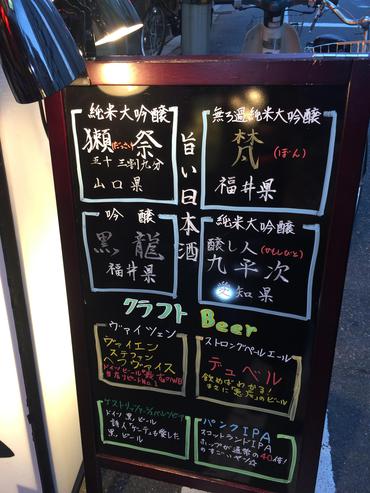 純米大吟醸
獺祭
だっさい
五十
三割九分
山口県
無ろ過純米大吟醸
梵
(ぼん)
福井県
旨い日本酒
吟醸
黒龍
福井県
純米大吟醸
醸し人
(かもしびと)
九平次
愛知県
クラフト Beer
ヴァイツェン
ヴァイエン
ステファン
ヘフヴァイス
ストロングペールエール
デュベル
飲めばわかる!
まさに"悪魔"のビール
ドイツ黒ビール
詩人"ゲーテ"も愛した
黒ビール
パンクIPA
スコットランドIPA
ホップが通常の40倍!
のすごいヤツ☆